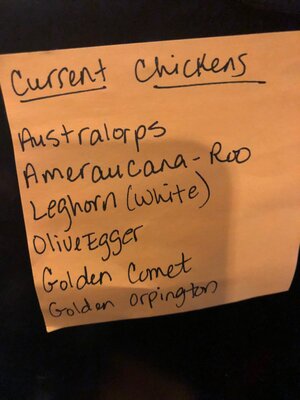 Current Chickens
Australorps
Ameraucana - Roo
Leghorn (white)
Olive Egger
Golden Comet
Golden Orpington